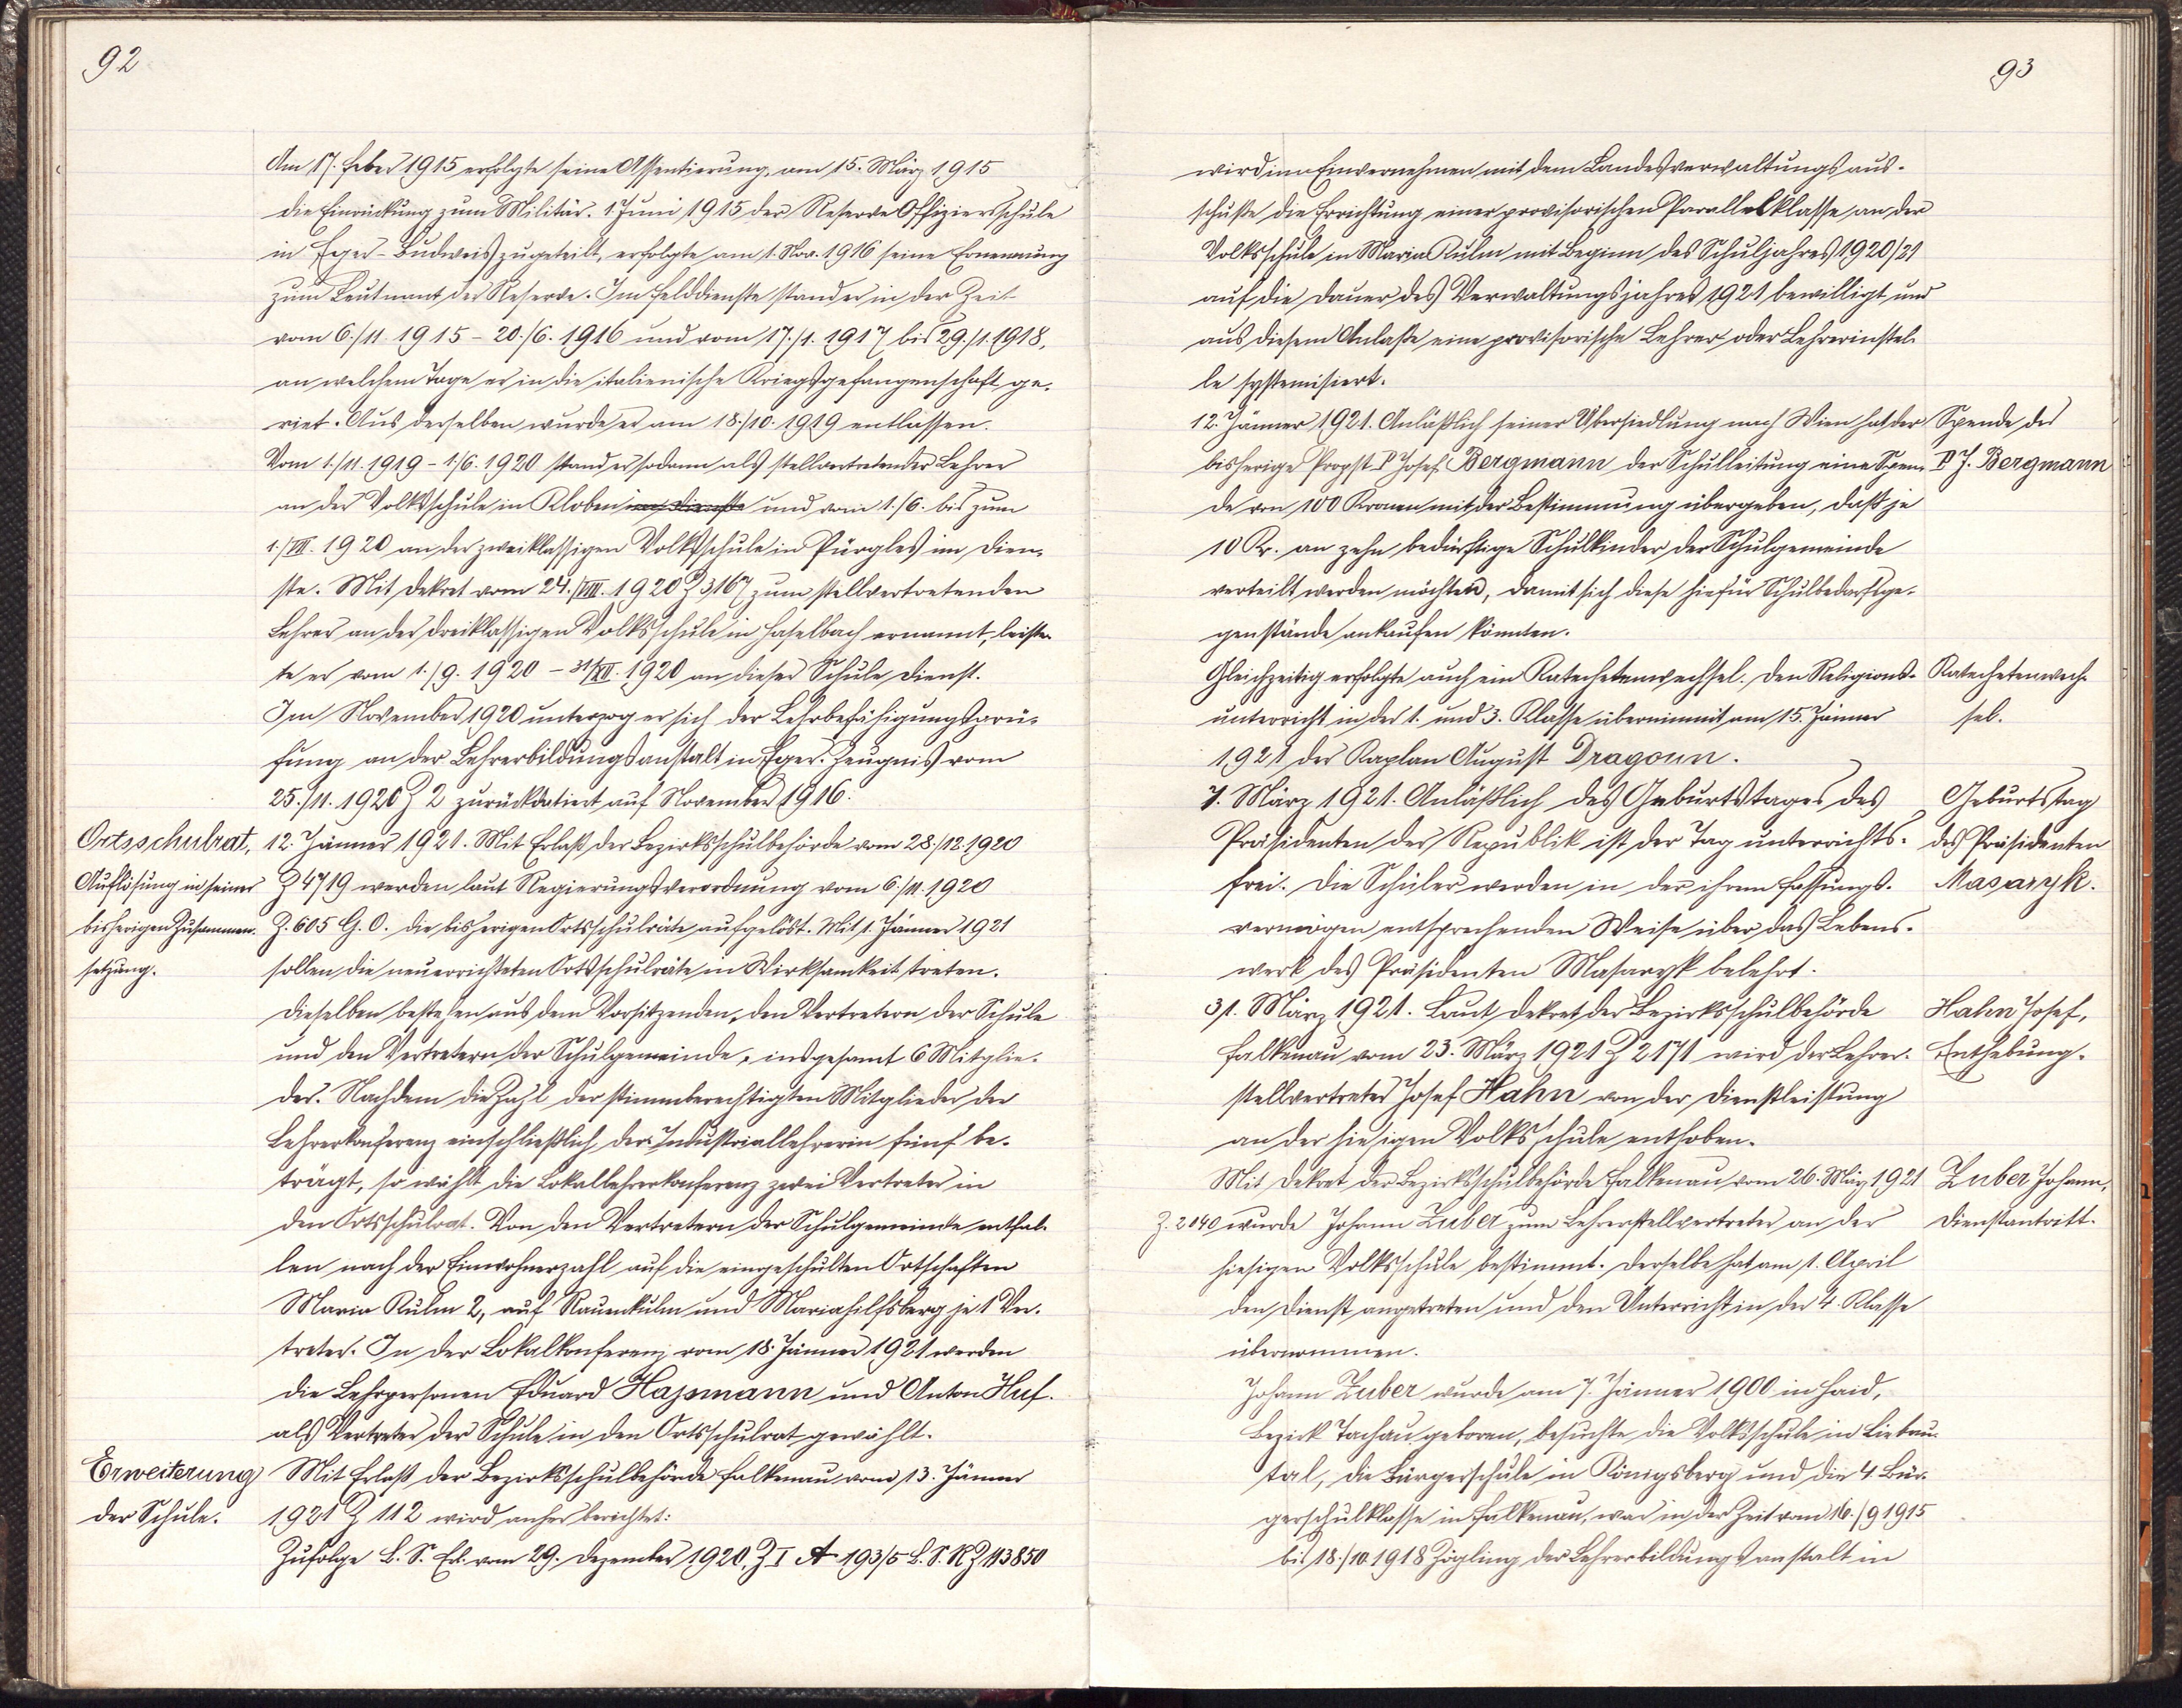 92
Am 17. Feber 1915 erfolgte seine Assentierung, am 15. März 1915
die Einrückung zum Militär. 1 Juni 1915 der Reserve Offiziersschule
in Eger-Budweis zugeteilt, erfolgte am 1. Nov. 1916 seine Ernennung
zum Leutnant der Reserve. Im Felddienste stand er in der Zeit
vom 6./11. 1915 - 20./6. 1916 und vom 17./1. 1917 bis 29./1. 1918,
an welchem Tage er in die italienische Kriegsgefangenschaft ge-
riet. Aus derselben wurde er am 18./10. 1919 entlassen.
Vom 1./11. 1919 - 1./6. 1920 stand er sodann als stellvertretender Lehrer
an der Volksschule in Kloben und vom 1./6. bis zum
1./VII. 1920 an der zweiklassigen Volksschule in Pürgles im Dien-
ste. Mit Dekret vom 24./VIII. 1920 Z 3167 zum stellvertretenden
Lehrer an der dreiklassigen Volksschule in Haselbach ernannt, leiste-
te er vom 1./9. 1920 - 31/XII. 1920 an dieser Schule Dienst.
Im November 1920 unterzog er sich der Lehrbefähigungsprü-
fung an der Lehrerbildungsanstalt in Eger. Zeugnis vom
25./11. 1920 Z 2 zurückdatiert auf November 1916.
Ortsschulrat,
Auflösung in seiner
bisherigen Zusammen-
setzung.
12. Jänner 1921. Mit Erlaß der Bezirksschulbehörde vom 28./12. 1920
Z 4719 werden laut Regierungsverordnung vom 6./11. 1920
Z. 605 G. O. die bisherigen Ortsschulräte aufgelöst. Mit 1. Jänner 1921
sollen die neuerrichteten Ortsschulräte in Wirksamkeit treten.
Dieselben bestehen aus dem Vorsitzenden, den Vertretern der Schule
und den Vertretern der Schulgemeinde, insgesamt 6 Mitglie-
der. Nachdem die Zahl der stimmberechtigten Mitglieder der
Lehrerkonferenz einschließlich der Industriallehrerin fünf be-
trägt, so wählt die Lokallehrerkonferenz zwei Vertreter in
den Ortsschulrat. Von den Vertretern der Schulgemeinde entfal-
len nach der Einwohnerzahl auf die eingeschulten Ortschaften
Maria Kulm 2, auf Rauenkulm und Mariahilfsberg je 1 Ver-
treter. In der Lokalkonferenz vom 18. Jänner 1921 werden
die Lehrpersonen Eduard Hajsmann und Anton Huf.
als Vertreter der Schule in den Ortsschulrat gewählt.
Erweiterung
der Schule.
Mit Erlaß der Bezirksschulbehörde Falkenau vom 13. Jänner
1921 Z 112 wird anher berichtet:
Zufolge L. S. Erl. vom 29. Dezember 1920 Z I A 193/5 L. S. R Z 113850
93
wird im Einvernehmen mit dem Landesverwaltungsaus-
schuße die Errichtung einer provisorischen Parallelklasse an der
Volksschule in Maria Kulm mit Beginn des Schuljahres 1920/21
auf die Dauer des Verwaltungsjahres 1921 bewilligt und
aus diesem Anlaße eine provisorische Lehrer oder Lehrerinstel-
le systemisiert.
12. Jänner 1921. Anläßlich seiner Übersiedlung nach Wien hat der
bisherige Propst P Josef Bergmann der Schulleitung eine Spen-
de von 100 Kronen mit der Bestimmung übergeben, daß je
10 Kr. an zehn bedürftige Schulkinder der Schulgemeinde
verteilt werden möchten, damit sich diese hiefür Schulbedarfsge-
genstände ankaufen könnten.
Spende des
P J. Bergmann
Gleichzeitig erfolgte auch ein Katechetenwechsel. Den Religions-
unterricht in der 1. und 3. Klasse übernimmt am 15. Jänner
1921 der Kaplan August Dragoun.
Katechetenwech-
sel.
7. März 1921. Anläßlich des Geburtstages des
Präsidenten der Republik ist der Tag unterrichts-
frei. Die Schüler werden in der ihrem Fassungs-
vermögen entsprechenden Weise über das Lebens-
werk des Präsidenten Masaryk belehrt.
Geburtstag
des Präsidenten
Masaryk.
31. März 1921. Laut Dekret der Bezirksschulbehörde
Falkenau vom 23. März 1921 Z 2171 wird der Lehrer-
stellvertreter Josef Hahn von der Dienstleistung
an der hiesigen Volksschule enthoben.
Hahn Josef,
Enthebung.
Mit Dekret der Bezirksschulbehörde Falkenau vom 26. März 1921
Z. 2040 wurde Johann Zuber zum Lehrerstellvertreter an der
hiesigen Volksschule bestimmt. Derselbe hat am 1. April
den Dienst angetreten und den Unterricht in der 4. Klasse
übernommen.
Zuber Johann,
Dienstantritt.
Johann Zuber wurde am 7. Jänner 1900 in Haid,
Bezirk Tachau geboren, besuchte die Volksschule in Liebau-
tal, die Bürgerschule in Königsberg und die 4. Bür-
gerschulklasse in Falkenau, war in der Zeit vom 16./9 1915
bis 18./10. 1918 Zögling der Lehrerbildungsanstalt in